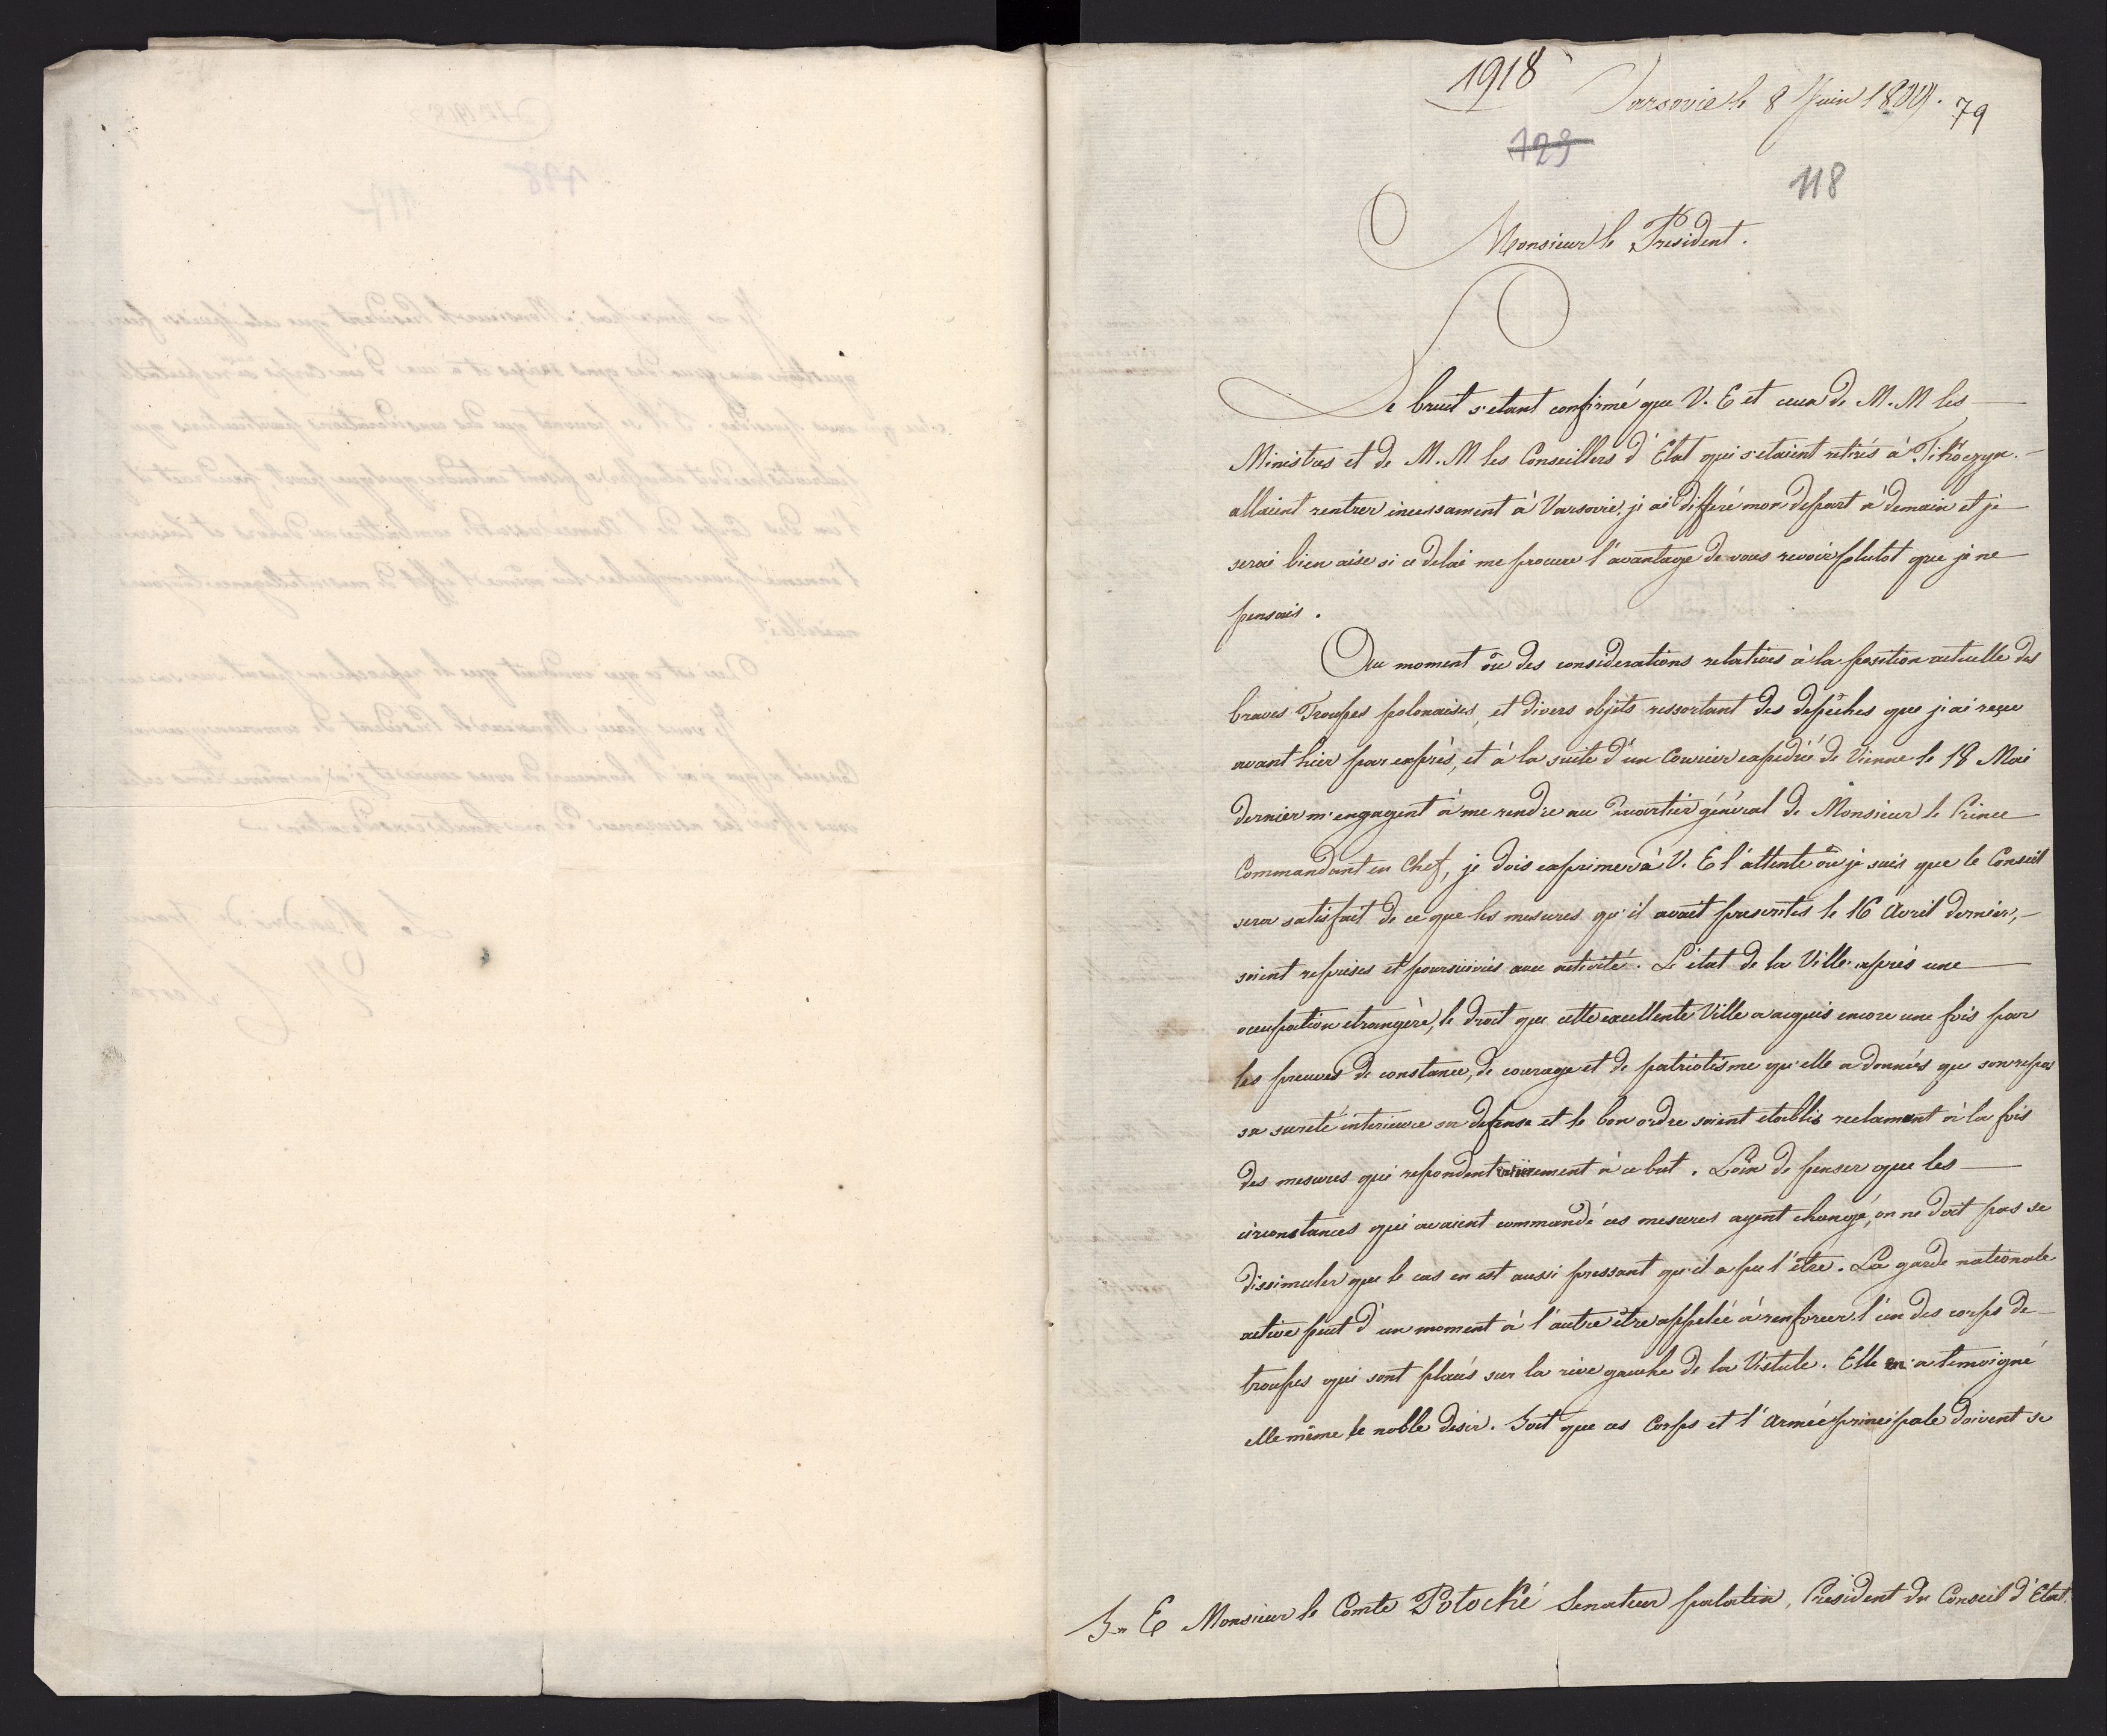 1918
Varsovie le 8 Juin 1809.
79
129
118
Monsieur le President.
Le bruit s'etant confirmé que V. E et ceux de M. M les
Ministres et de M. M les Conseillers d'Etat qui s'etaient retirés à Tikoczyn.
allaient rentrer incessament à Varsovie, j'ai differé mon depart à demain et je
serai bien aise si ce delai me procure l'avantage de vous revoir plutot que je ne
pensais.
Au moment où des considerations relatives à la position actuelle des
braves Troupes polonaises, et divers objets ressortant des depêches que j'ai reçu
avant hier par exprès, et à la suite d'un Courier expedié de Vienne le 18 Mai
dernier m'engagent à me rendre au Quartier général de Monsieur le Prince
Commandant en Chef, je dois exprimer à V. E l'attente où je suis que le Conseil
sera satisfait de ce que les mesures qu'il avait prescrites le 16 Avril dernier,
soient reprises et poursuivis avec activité. L'etat de la Ville après une
occupation etrangère, le droit que cette excellente Ville a acquis encore une fois par
les preuves de constance, de courage et de patriotisme qu'elle a donnés que son repos
sa sureté interieure sa defense et le bon ordre soient etablis reclament à la fois
des mesures qui repondent à ce but. Loin de penser que les
circonstances qui avaient commandé ces mesures ayent changé, on ne doit pas se
dissimuler que le cas en est aussi pressant qu'il a pu l'être. La garde nationale
active peut d'un moment à l'autre être appelée à renforcer l'un des corps de
troupes qui sont placés sur la rive gauche de la Vistule. Elle en a temoigné
elle même le noble desir. Soit que ces Corps et l'Armée principale doivent se
S. E Monsieur le Comte Potocki Senateur palatin, President du Conseil d'Etat.